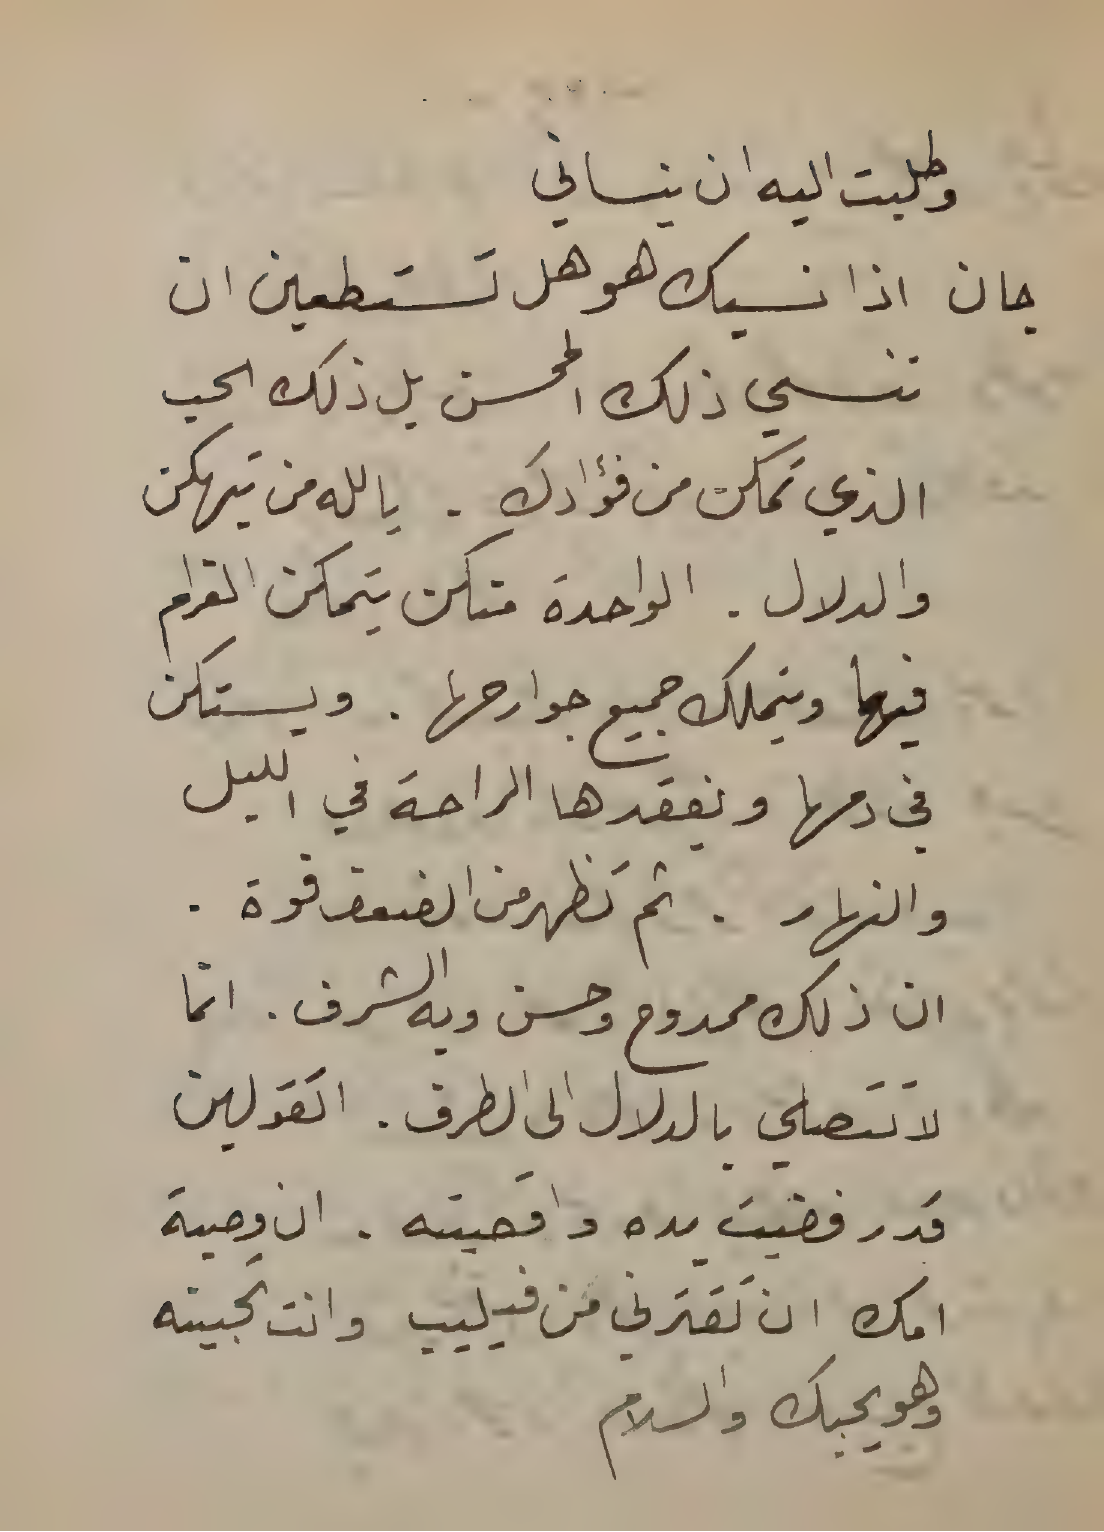 وطلبت اليه ان ينساني
جان اذا نسيك هو هل تستطعين ان
تنسي ذلك الحسن بل ذلك الحب
الذي تمكن من فؤادك . يالله من
والدلال . الواحدة منكن يتمكن الغرام
فيها ويتملك جميع جوارحها . ويستكن
في دمها ويفقدها الراحة في الليل
والنهار . ثم تظهر من الضعف قوة .
ان ذلك ممدوح وحسن وبه الشرف . انما
لا تتصلي بالدلال الى الطرف . اتقولين
قدر فضيت يده واقصيته . ان وصية
امك ان تقترني من فيليب وانت تحبينه
وهو يحبك والسلام